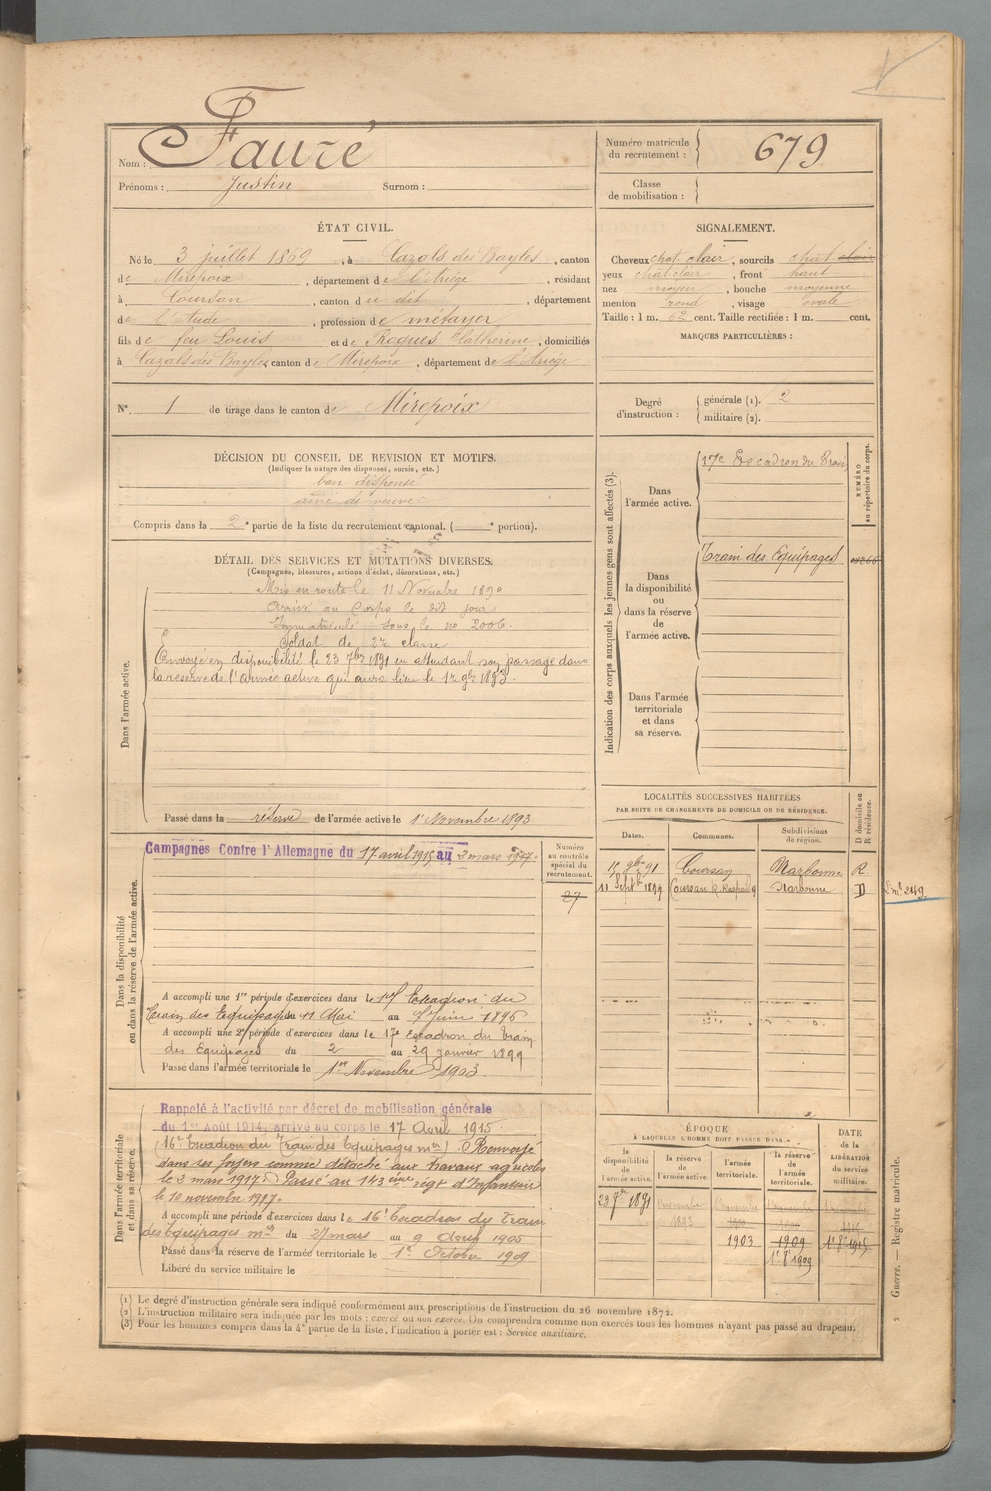 Nom : Fauré
Prénoms : Justin Surnom :
Numéro matricule du recrutement : 679
Classe de mobilisation :
ÉTAT CIVIL.
Né le 3 juillet 1869, à Cazals des Bayles, canton
de Mirepoix, département de l'Ariège, résidant
à Coursan, canton du dit, département
de l'Aude, profession de métayer
fils de feu Louis et de Roques Catherine, domiciliés
à Cazals des Bayles canton de Mirepoix, département de l'Ariège
N° 1 de tirage dans le canton de Mirepoix
SIGNALEMENT.
Cheveux chat clair, sourcils chat clair
yeux chat clair, front haut
nez moyen, bouche moyenne
menton rond, visage ovale
Taille : 1 m. 62 cent. Taille rectifiée : 1 m. cent.
MARQUES PARTICULIÈRES :
Degré d'instruction : générale (1). 2
militaire (2).
DÉCISION DU CONSEIL DE REVISION ET MOTIFS.
(Indiquer la nature des dispenses, sursis, etc.)
bon dispensé
aîné de veuve
Compris dans la 2e partie de la liste du recrutement cantonal. ( e portion).
DÉTAIL DES SERVICES ET MUTATIONS DIVERSES.
(Campagnes, blessures, actions d'éclat, décorations, etc.)
Dans l'armée active.
Mis en route le 11 Novembre 1890
Arrivé au Corps le dit jour
Immatriculé sous le no 2006.
Soldat de 2e classe
Envoyé en disponibilité le 23 7bre 1891 en attendant son passage dans
la réserve de l'armée active qui aura lieu le 1er 9bre 1893.
Passé dans la réserve de l'armée active le 1er Novembre 1893
Indication des corps auxquels les jeunes gens sont affectés (3).
NUMÉRO au répertoire du corps.
Dans l'armée active.
17e Escadron du Train
Dans la disponibilité ou dans la réserve de l'armée active.
Train des Equipages
Dans l'armée territoriale et dans sa réserve.
Dans la disponibilité ou dans la réserve de l'armée active.
Campagnes Contre l'Allemagne du 17 avril 1915 au 3 mars 1917.
Numéro au contrôle spécial du recrutement.
27
A accompli une 1re période d'exercices dans le 17e Escadron du
Train des Equipages du 11 Mai au 7 Juin 1896
A accompli une 2e période d'exercices dans le 17e Escadron du Train
des Equipages du 2 au 29 janvier 1899
Passé dans l'armée territoriale le 1er Novembre 1903.
LOCALITÉS SUCCESSIVES HABITÉES
PAR SUITE DE CHANGEMENTS DE DOMICILE OU DE RÉSIDENCE.
D domicile ou R résidence.
Dates. Communes. Subdivisions de région.
15 9bre 91 Coursan Narbonne R
11 Septbre 1899 Coursan R. Raspail 9 Narbonne D
Dans l'armée territoriale et dans sa réserve.
Rappelé à l'activité par décret de mobilisation générale
du 1er Août 1914, arrivé au corps le 17 Avril 1915.
(16e Escadron du Train des Equipages mres). Renvoyé
dans ses foyers comme détaché aux travaux agricoles
le 3 mars 1917. Passé au 143ème Régt d'Infanterie
le 10 novembre 1917.
A accompli une période d'exercices dans le 16e Escadron du Train
des Equipages mres du 27 mars au 9 Avril 1905
Passé dans la réserve de l'armée territoriale le 1er Octobre 1909
Libéré du service militaire le
ÉPOQUE
À LAQUELLE L'HOMME DOIT PASSER DANS
la disponibilité de l'armée active.
la réserve de l'armée active.
l'armée territoriale.
la réserve de l'armée territoriale.
DATE de la LIBÉRATION du service militaire.
23 7bre 1891 1 novembre 1893
1903 1909 1er 8bre 1915
1er 8bre 1909
(1) Le degré d'instruction générale sera indiqué conformément aux prescriptions de l'instruction du 26 novembre 1872.
(2) L'instruction militaire sera indiquée par les mots : exercé ou non exercé. On comprendra comme non exercés tous les hommes n'ayant pas passé au drapeau.
(3) Pour les hommes compris dans la 4e partie de la liste, l'indication à porter est : Service auxiliaire.
Guerre. — Registre matricule.